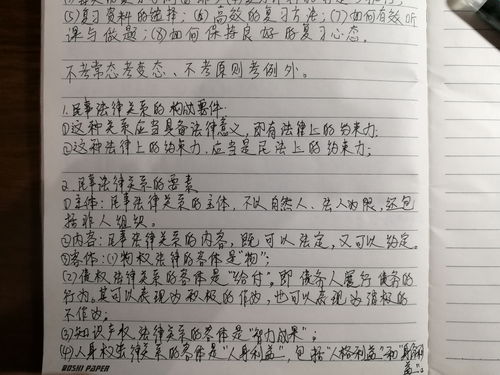 (5)复习资料的选择；(6)高效的复习方法；(7)如何有效听
课与做题；(8)如何保持良好的复习心态。
不考常态考变态、不考原则考例外。
1.民事法律关系的构成要件
①这种关系应当具备法律意义，即有法律上的约束力；
②这种法律上的约束力，应当是民法上的约束力；
2.民事法律关系的要素
①主体：民事法律关系的主体，不以自然人、法人为限，还包
括非人组织。
②内容：民事法律关系的内容，既可以法定，又可以约定。
③客体：(1)物权法律的客体是“物”；
(2)债权法律关系的客体是“给付”。即债务人履行债务的
行为。其可以表现为积极的作为，也可以表现为消极的
不作为。
(3)知识产权法律关系的客体是“智力成果”；
(4)人身权法律关系的客体是“人身利益”，包括“人格利益”和“身份利
益”。
BOSHI PAPER